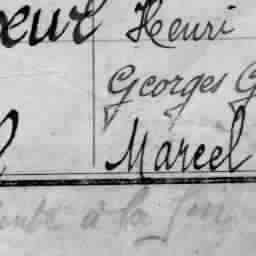 œur Henri
Georges G
Marcel
à la